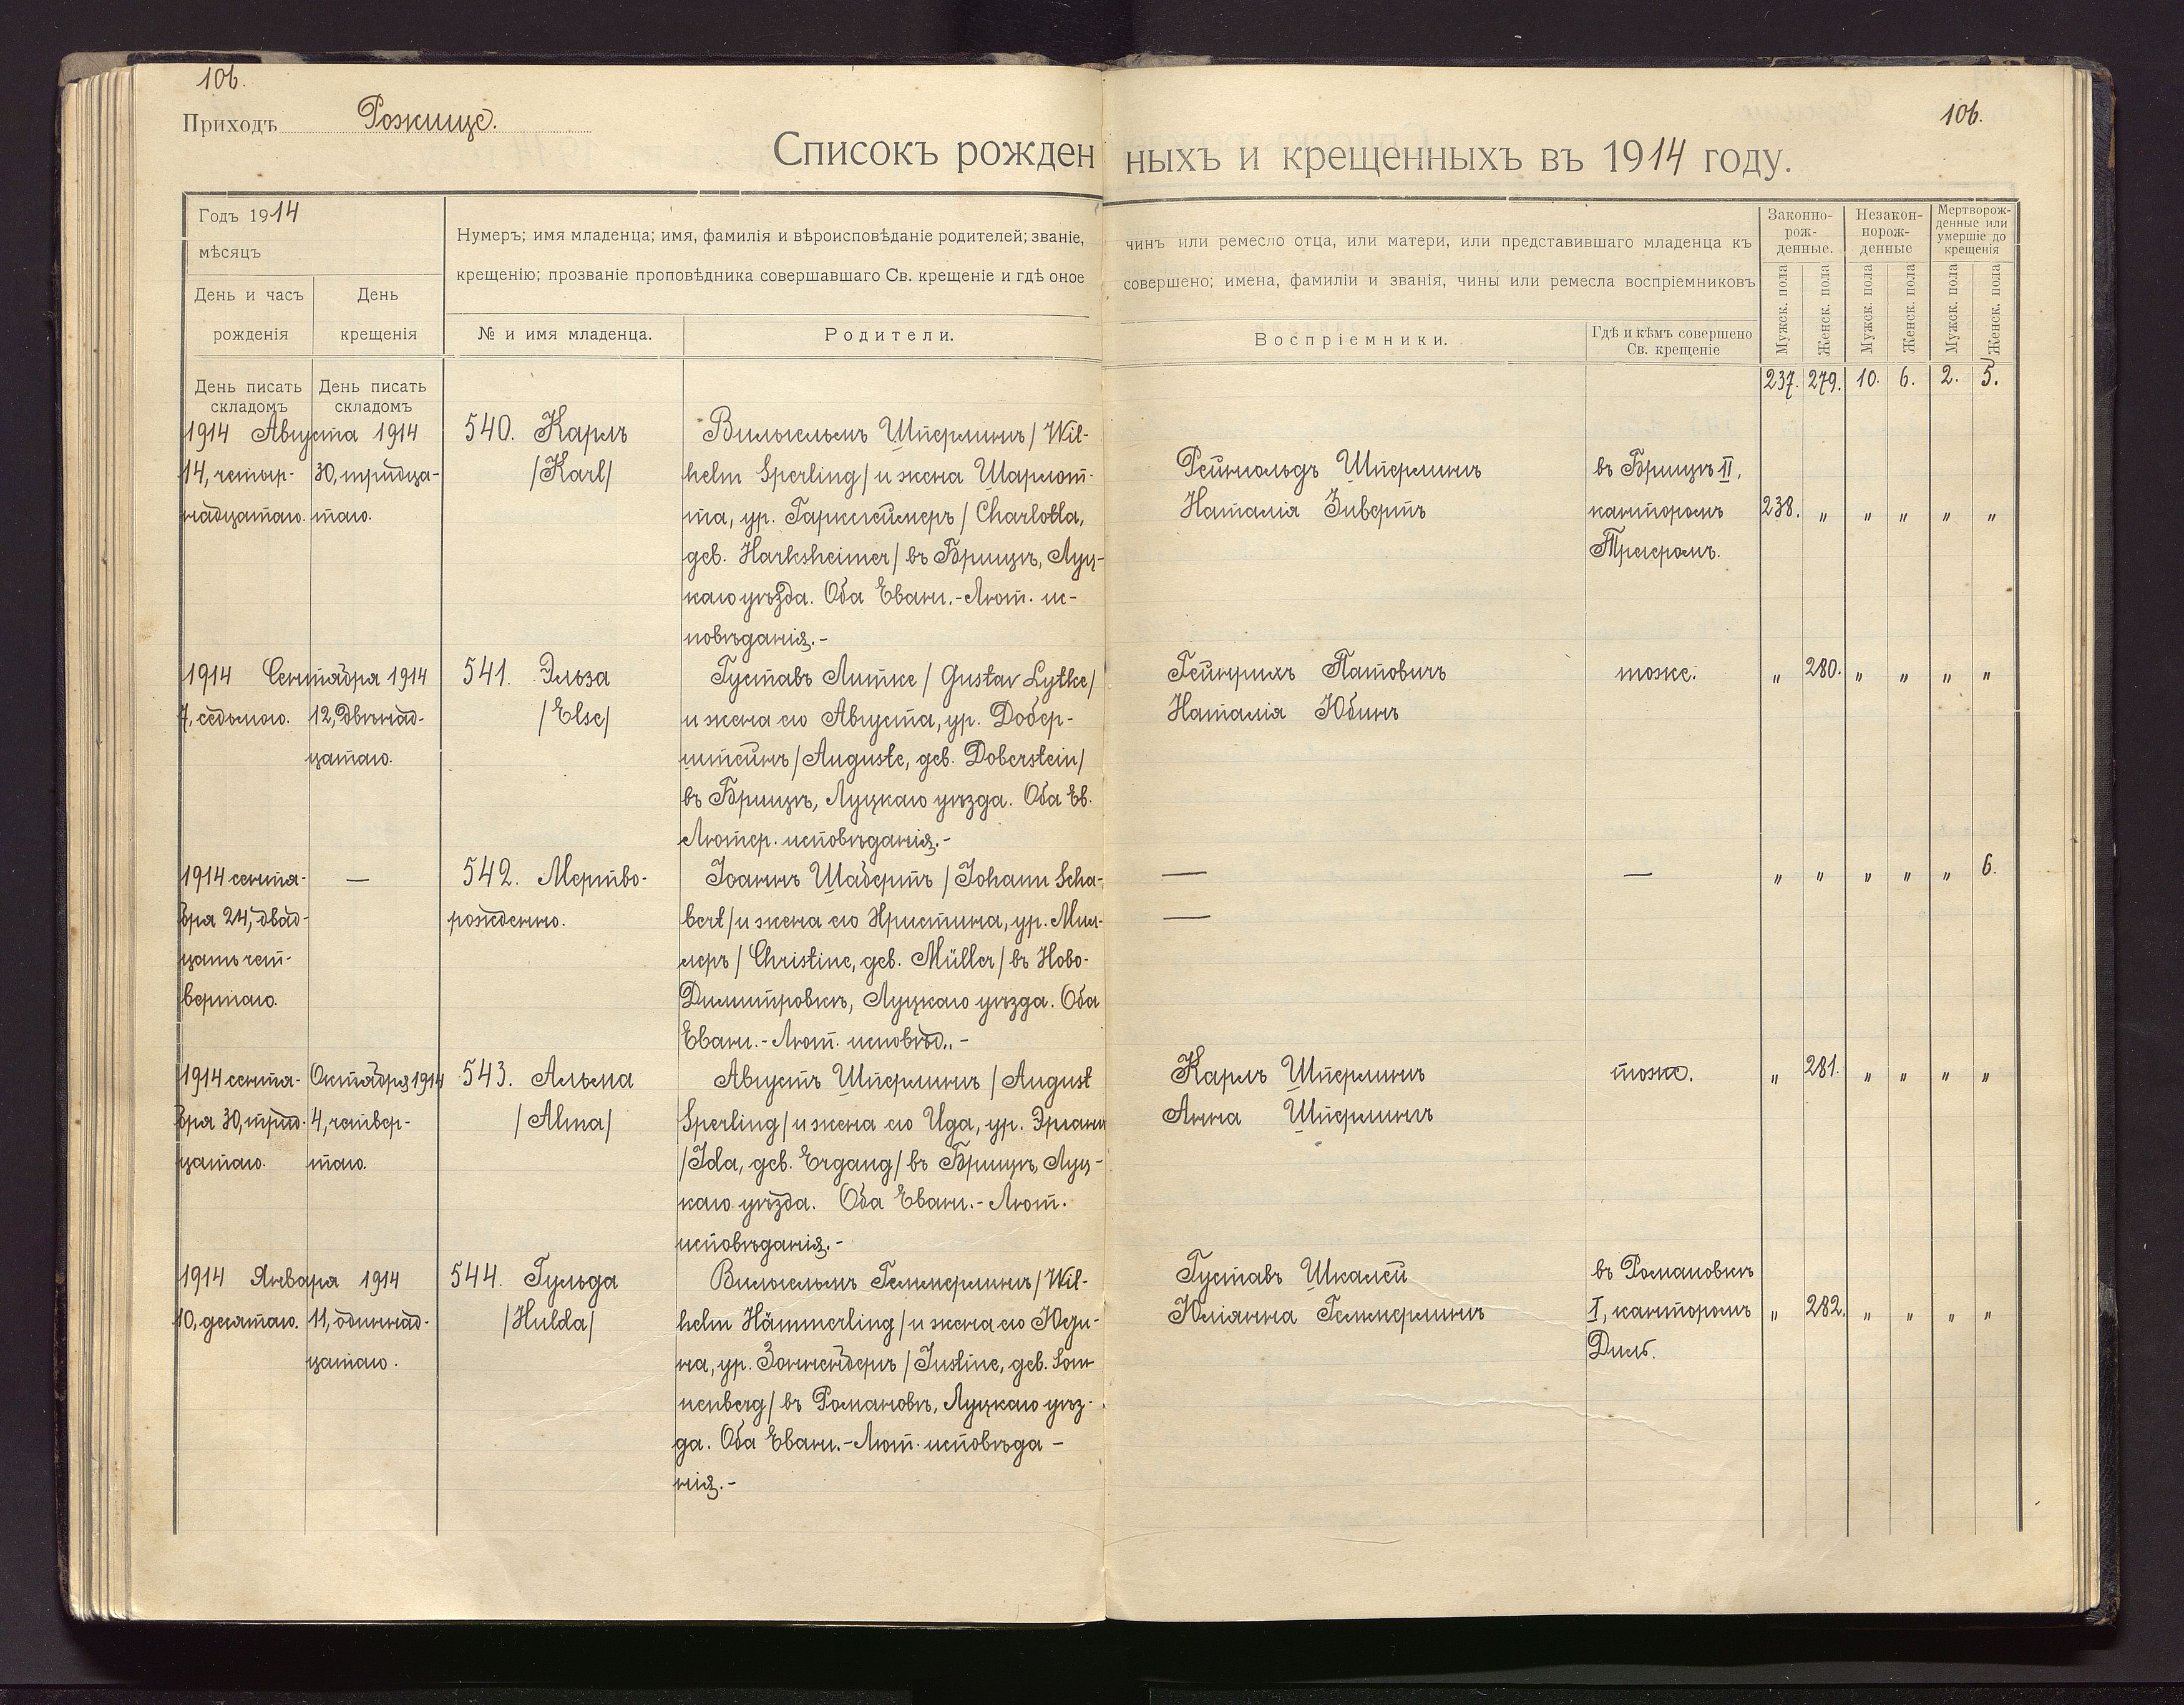 106.
Приходъ Рожище.
106.
Списокъ рожденныхъ и крещенныхъ въ 1914 году.
Годъ 1914
мѣсяцъ
День и часъ рожденія
День крещенія
Нумеръ; имя младенца; имя, фамилія и вѣроисповѣданіе родителей; званіе, чинъ или ремесло отца, или матери, или представившаго младенца къ
крещенію; прозваніе проповѣдника совершавшаго Св. крещеніе и гдѣ оное совершено; имена, фамиліи и званія, чины или ремесла воспріемниковъ
№ и имя младенца.
Родители.
Воспріемники.
Гдѣ и кѣмъ совершено
Св. крещеніе
Законно-
рож-
денные.
Незакон-
норож-
денные
Мертворож-
денные или
умершіе до
крещенія
Мужск. пола
Женск. пола
Мужск. пола
Женск. пола
Мужск. пола
Женск. пола
День писать
складомъ
День писать
складомъ
237. 279. 10. 6. 2. 5.
1914 Августа 1914
14, четыр-
надцатаго.
30, тридца-
таго.
540. Карлъ
/Karl/
Вильгельмъ Шперлингъ /Wil-
helm Sperling/ и жена Шарлот-
та, ур. Гаркстеймеръ /Charlotta,
geb. Harksheimer/ въ Брищѣ, Луц-
каго уѣзда. Оба Еванг.-Лют. ис-
повѣданія.-
Рейнгольдъ Шперлингъ
Наталія Зивертъ
въ Брищѣ II,
канторомъ
Трегеромъ.
238. " " " " "
1914 Сентября 1914
7, седьмого.
12, двѣнад-
цатаго.
541. Эльза
/Else/
Густавъ Литке /Gustav Lytke/
и жена его Августа, ур. Добер-
штейнъ /Auguste, geb. Doberstein/
въ Брищѣ, Луцкаго уѣзда. Оба Ев.
Лютер. исповѣданія.-
Гейнрихъ Патовичъ
Наталія Юбинъ
тоже.
" 280. " " " "
1914 сентя-
бря 24, двад-
цать чет-
вертаго.
—
542. Мертво-
рожденно.
Іоаннъ Шабертъ /Johann Scha-
bert/ и жена его Христина, ур. Мил-
леръ /Christine, geb. Müller/ въ Ново-
Димитровкѣ, Луцкаго уѣзда. Оба
Еванг.-Лют. исповѣд..-
—
—
—
" " " " " 6.
1914 сентя-
бря 30, трид-
цатаго.
Октября 1914
4, четвер-
таго.
543. Альма
/Alma/
Августъ Шперлингъ /August
Sperling/ и жена его Ида, ур. Эргангъ
/Ida, geb. Ergang/ въ Брищѣ, Луц-
каго уѣзда. Оба Еванг.-Лют.
исповѣданія.-
Карлъ Шперлингъ
Анна Шперлингъ
тоже.
" 281. " " " "
1914 Января 1914
10, десятаго.
11, одиннад-
цатаго.
544. Гульда
/Hulda/
Вильгельмъ Геммерлингъ /Wil-
helm Hämmerling/ и жена его Юсти-
на, ур. Зонненбергъ /Justine, geb. Son-
nenberg/ въ Романовѣ, Луцкаго уѣз-
да. Оба Еванг.-Лют. исповѣда-
нія.-
Густавъ Шкалей
Юліанна Геммерлингъ
въ Романовкѣ
I, канторомъ
Диль.
" 282. " " " "